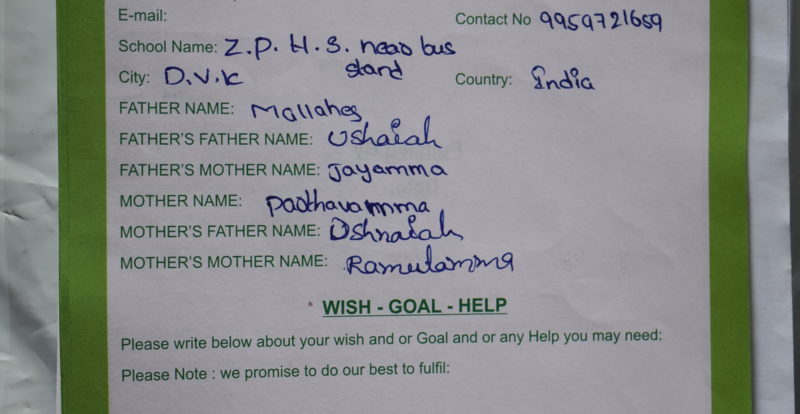 E-mail: Contact No 9959721659
School Name: Z.P.H.S. near bus
stand
City: D.V.K Country: India
FATHER NAME: Mallahes
FATHER'S FATHER NAME: Ushaiah
FATHER'S MOTHER NAME: Jayamma
MOTHER NAME: Parthavamma
MOTHER'S FATHER NAME:
MOTHER'S MOTHER NAME: Ramulamma
WISH - GOAL - HELP
Please write below about your wish and or Goal and or any Help you may need:
Please Note : we promise to do our best to fulfil: